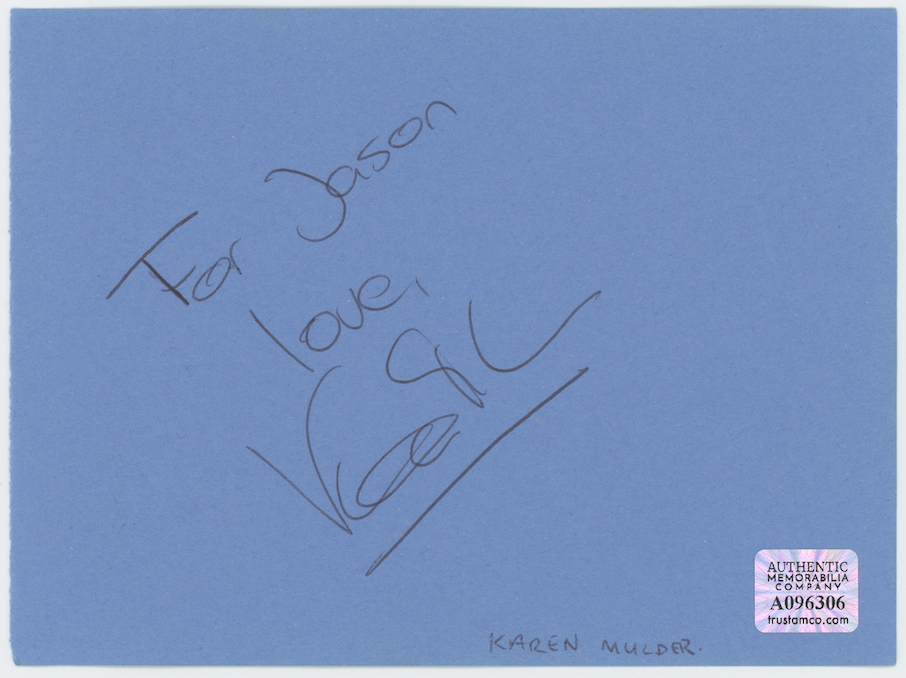 For Jason
love,
AUTHENTIC
MEMORABILIA
COMPANY
A096306
trustamco.com
KAREN MULDER.